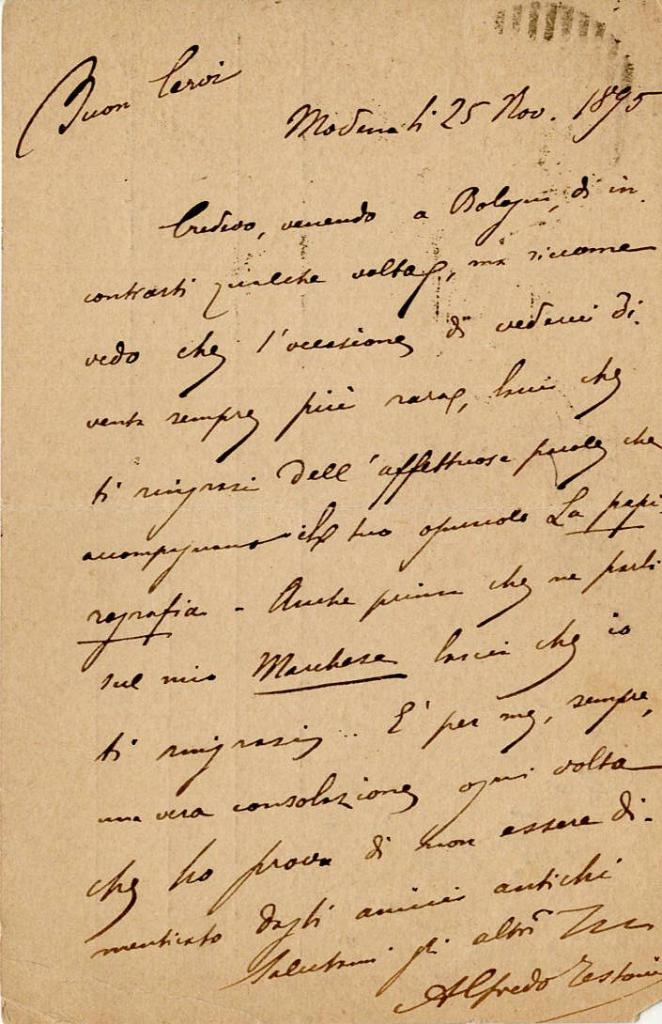 Buon Cervi
Modena li 25 Nov. 1895
Credevo, venendo a Bologna, di in-
contrarti qualche volta, ma siccome
vedo che l'occasione di vederci di-
venta sempre più rara, lascia che
ti ringrazi dell'affettuose parole che
accompagnano il tuo opuscolo La papi-
rografia - Anche prima che ne parli
sul mio Marchese lascia che io
ti ringrazi .. E' per me, sempre,
una vera consolazione ogni volta
che ho prova di non essere di-
menticato dagli amici antichi
Salutami gli altri
Alfredo Testoni